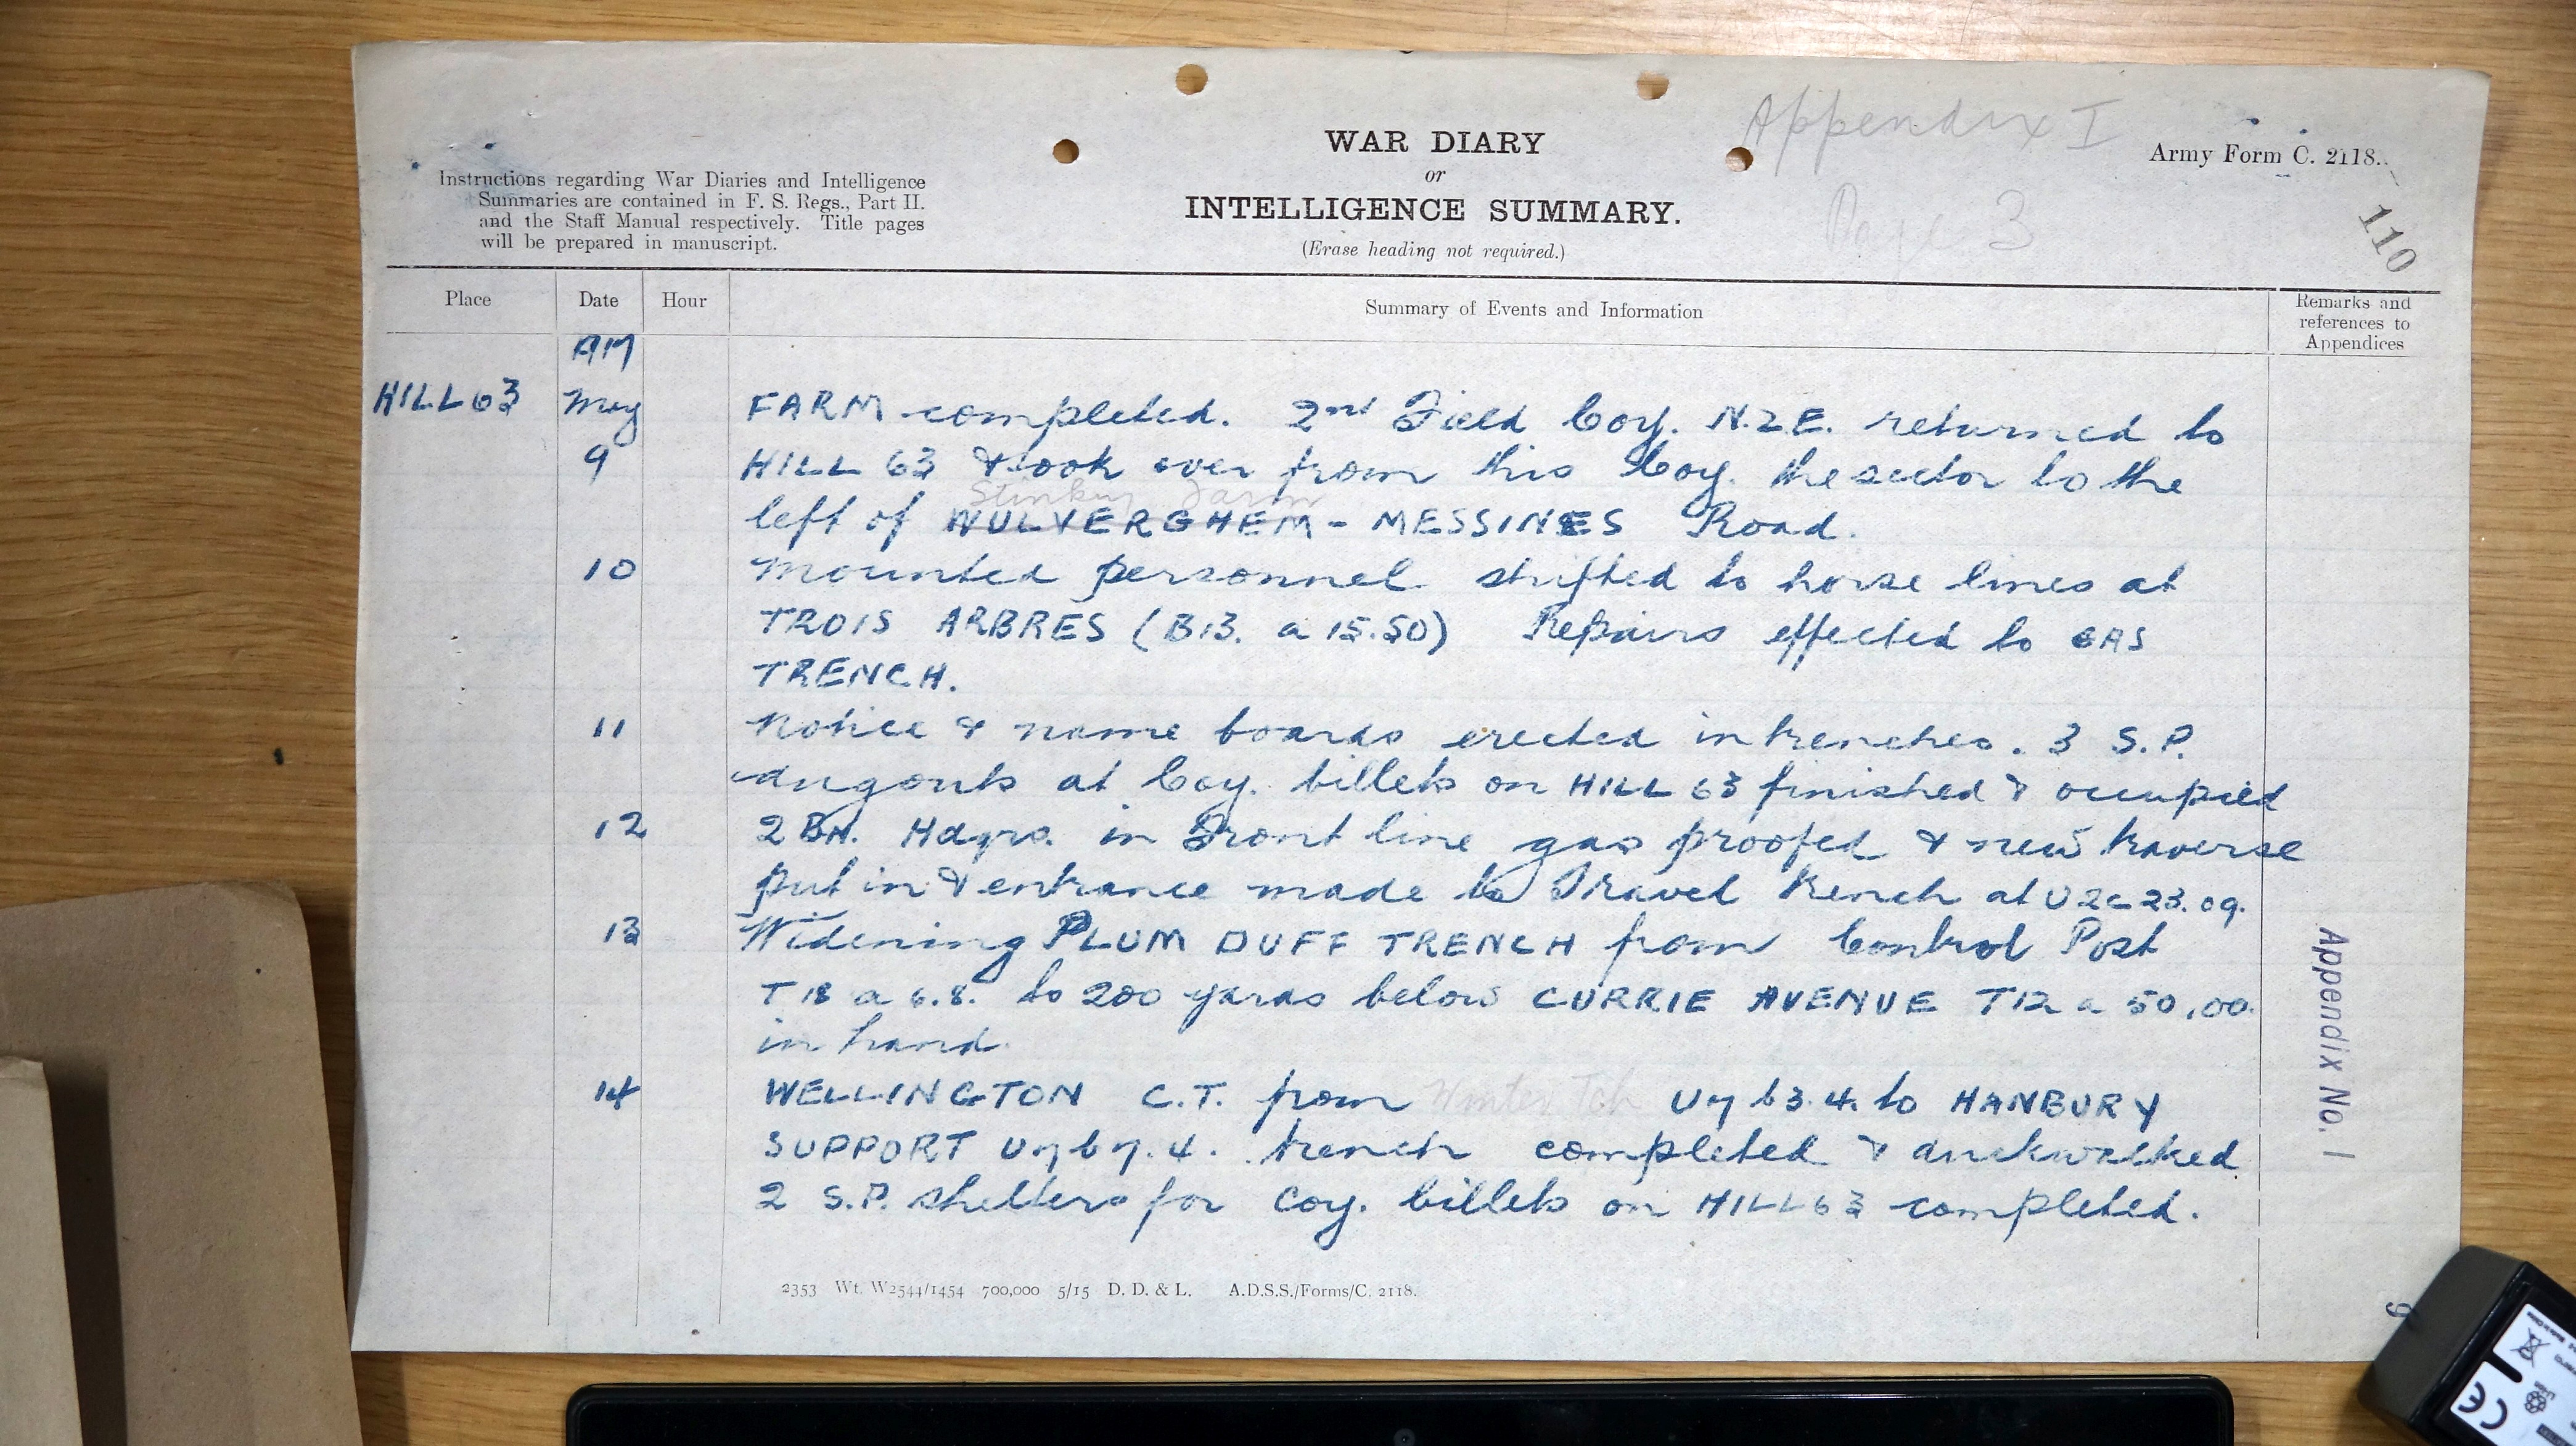 Appendix I
Page 3
WAR DIARY
or
INTELLIGENCE SUMMARY.
(Erase heading not required.)
Army Form C. 2118.
110
Instructions regarding War Diaries and Intelligence
Summaries are contained in F. S. Regs., Part II.
and the Staff Manual respectively. Title pages
will be prepared in manuscript.
Place Date Hour Summary of Events and Information Remarks and references to Appendices
1917
HILL 63 May FARM completed. 2nd Field Coy. N.Z.E. returned to
9 HILL 63 & took over from this Coy. the sector to the
Stinking Farm
left of WULVERGHEM - MESSINES Road.
10 Mounted personnel shifted to horse lines at
TROIS ARBRES (B13. a 15.50) Repairs effected to GAS
TRENCH.
11 Notice & name boards erected in trenches. 3 S.P.
dugouts at Coy. billets on HILL 63 finished & occupied
12 2 BN. Hdqrs. in Front line gas proofed & new traverse
put in & entrance made to Travel trench at U2c 23.09.
13 Widening PLUM DUFF TRENCH from Control Post
T18 a 6.8. to 200 yards below CURRIE AVENUE T12 a 50,00.
in hand.
14 WELLINGTON C.T. from Winter Tch U7 b3.4. to HANBURY
SUPPORT U7 b 7.4. trench completed & duckwalked
2 S.P. shelters for Coy. billets on HILL 63 completed.
Appendix No. 1
2353 Wt. W2544/1454 700,000 5/15 D. D. & L. A.D.S.S./Forms/C. 2118.
CE